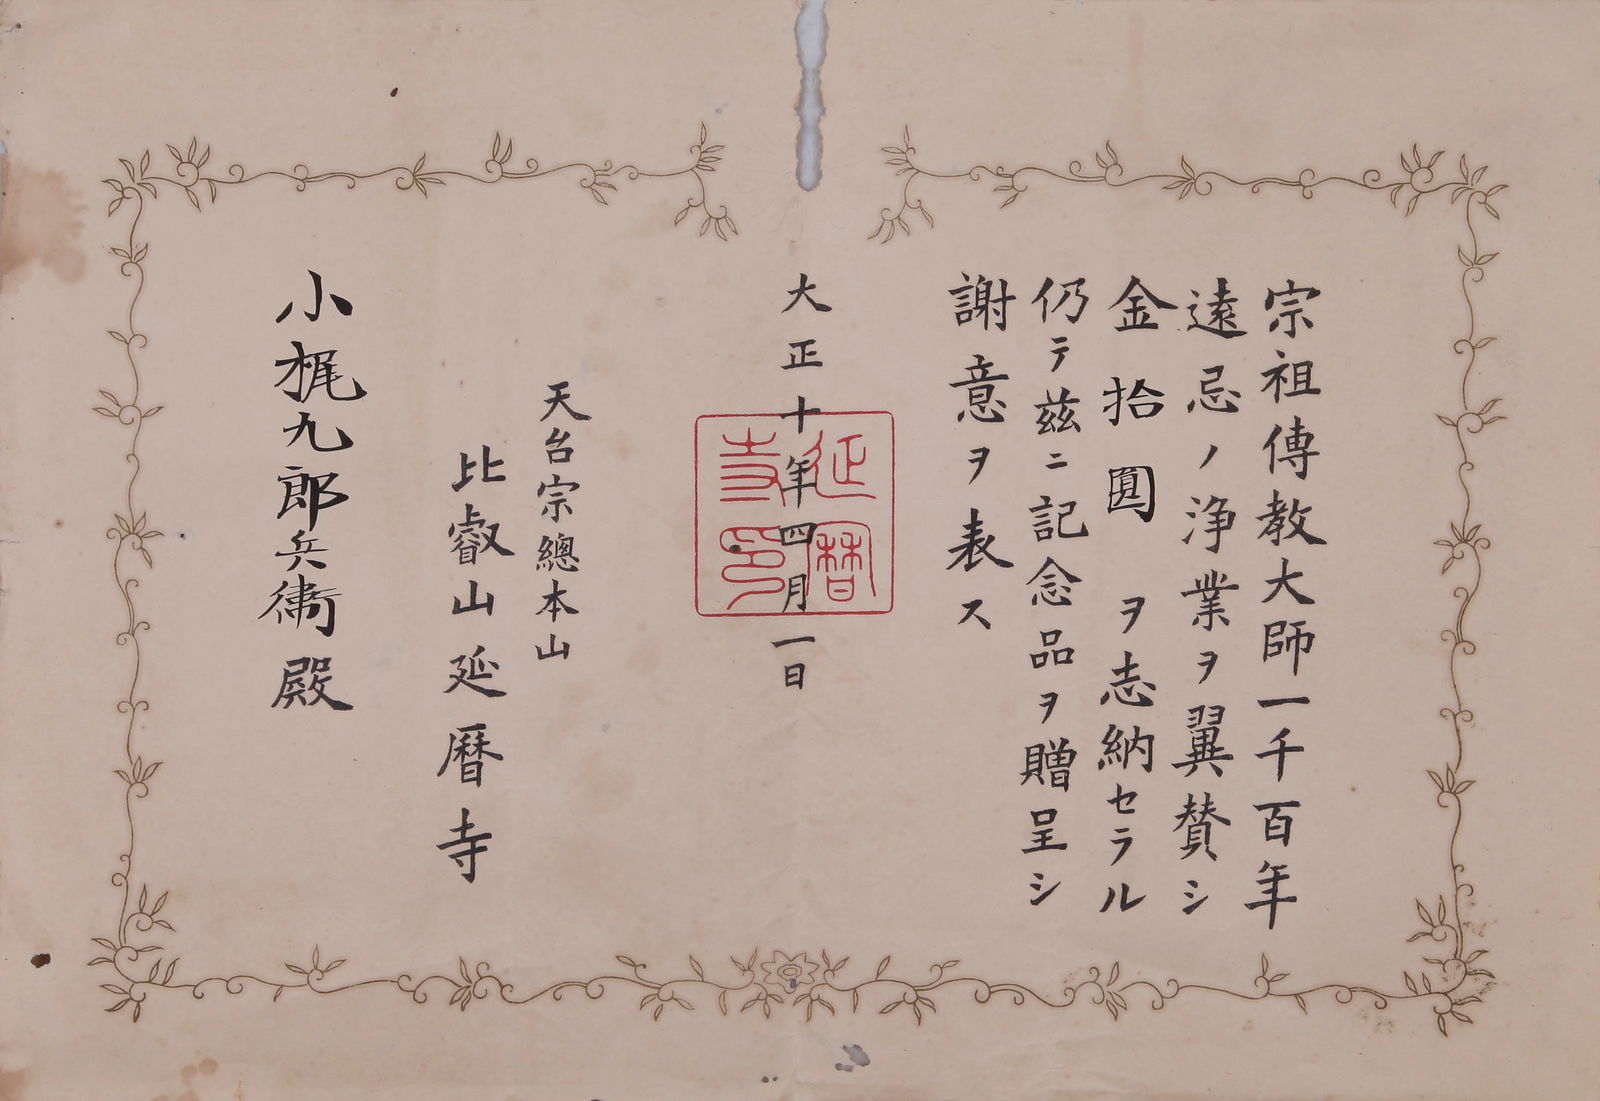 宗祖傳教大師一千百年
遠忌ノ浄業ヲ翼賛シ
金拾圓ヲ志納セラル
仍テ茲ニ記念品ヲ贈呈シ
謝意ヲ表ス
大正十年四月一日
延暦寺印
天台宗總本山
比叡山延暦寺
小梶九郎兵衞殿